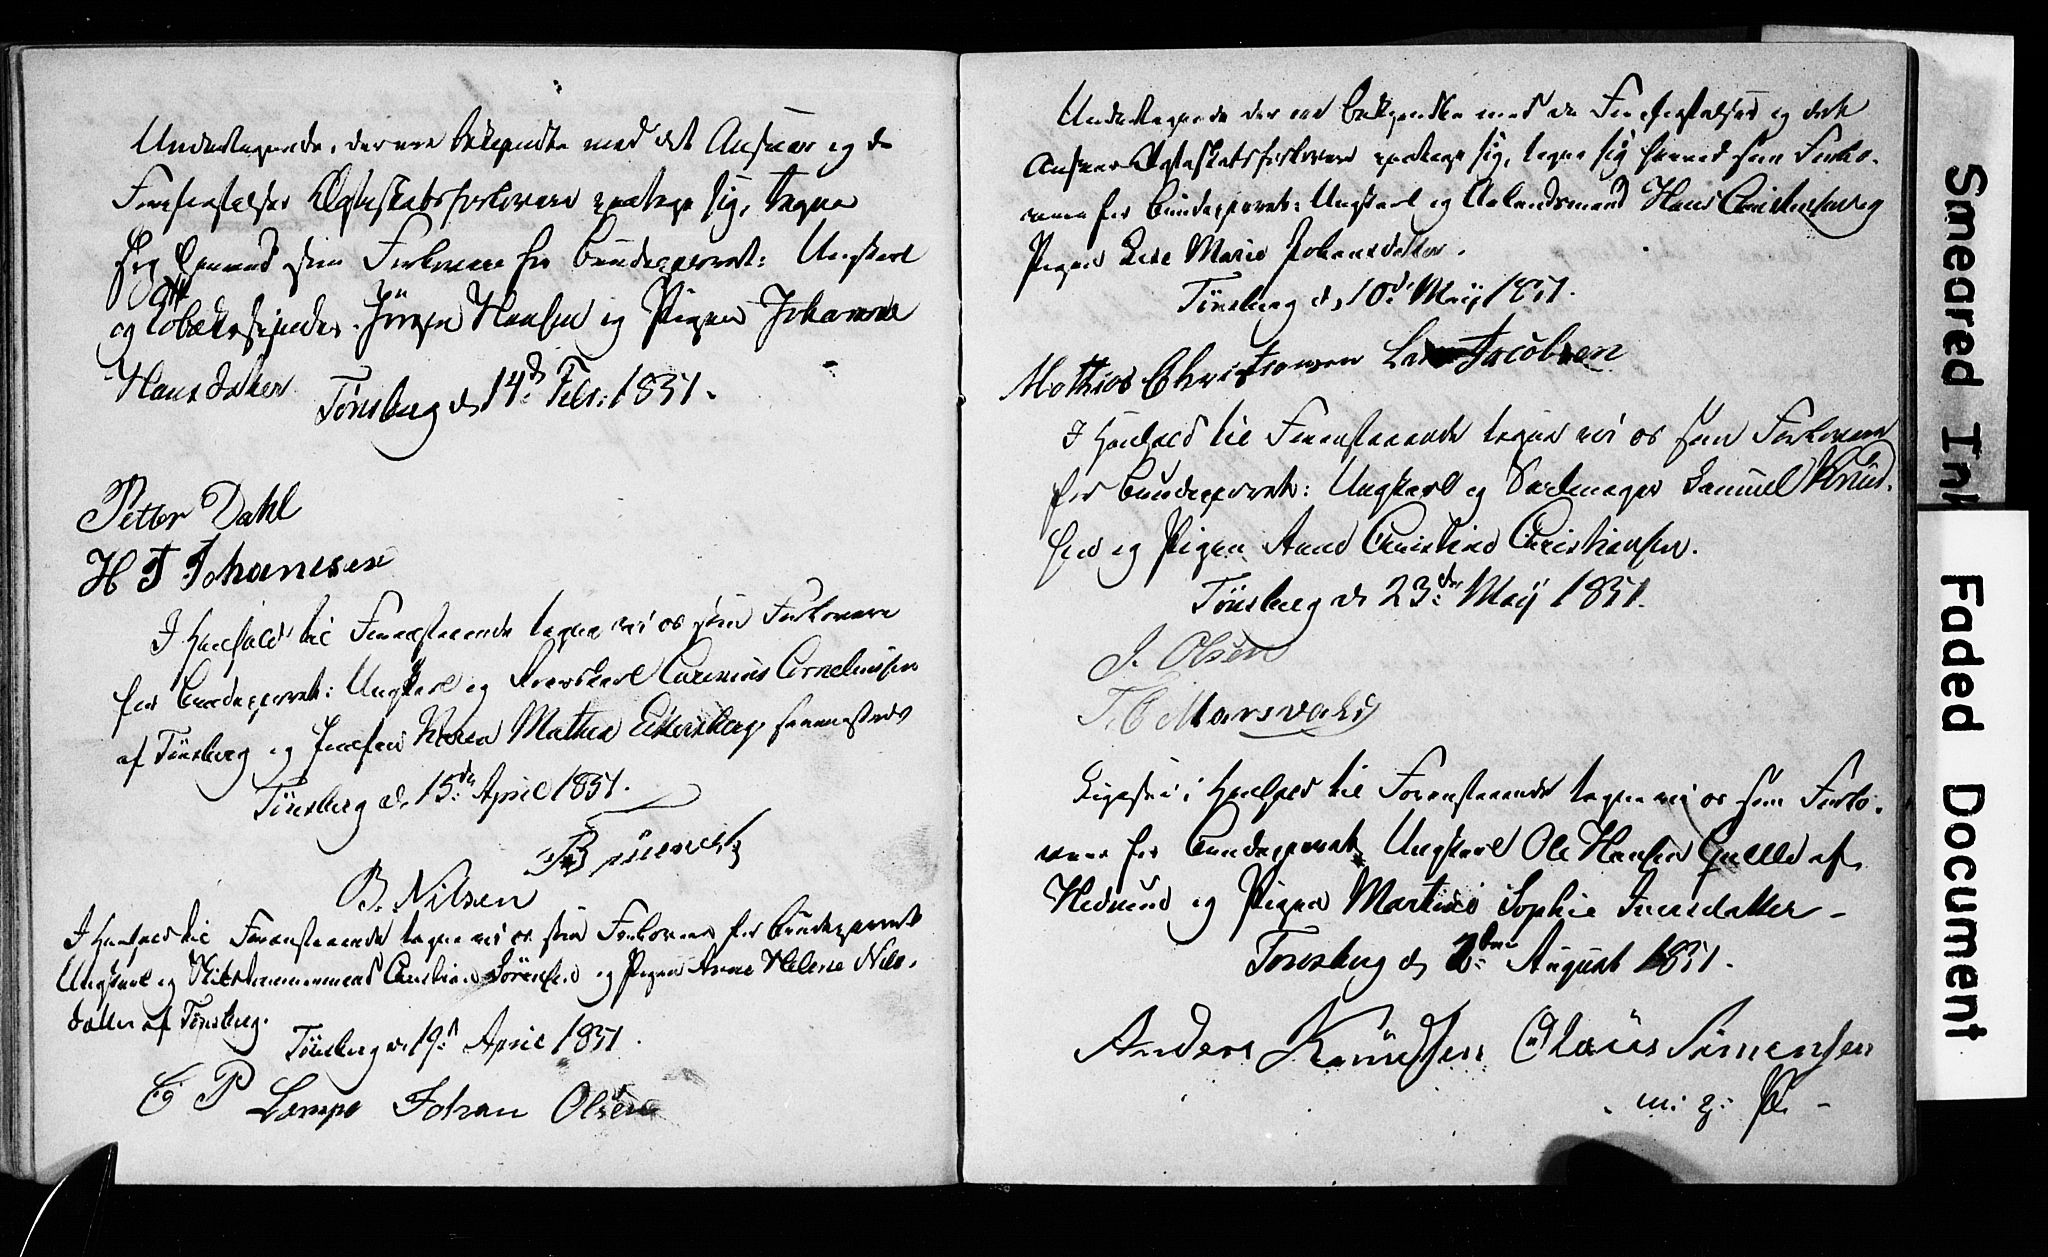 Undertegnede, der ere bekjendte med det Ansvar og de
Forpligtelser Ægteskabsforlovere paatage sig, tegne
sig herved som Forlovere for Brudeparret: Ungkarl
og Jörgen Hansen og Pigen Johanne
Hansdatter Tönsberg d. 14de Febr: 1851.
Petter Dahl
H J Johannesen
I Henhold til Foranstaaende tegne vi os som Forlovere
for Brudeparret: Ungkarl og Corneliussen
af Tönsberg og Maren Mathea sammesteds
Tönsberg d. 15de April 1851.
B. Nilsen
I Henhold til Foranstaaende tegne vi os som Forlovere for Brudeparret
Ungkarl og Christian Sörensen og Pigen Anne Helene Nils-
datter af Tönsberg.
Tönsberg d. 19de April 1851.
C P Lampe Johan Olsen
Undertegnede der ere bekjendte med de Forpligtelser og det
Ansvar Ægteskabsforlovere paatage sig, tegne sig herved som Forlo-
vere for Brudeparret: Ungkarl og Hans Christensen og
Pigen Lise Marie Johansdatter.
Tönsberg d. 10de Maij 1851.
Mathias Christiansen Lars Jacobsen
I Henhold til Foranstaaende tegne vi os som Forlovere
for Brudeparret: Ungkarl og Sadelmager Samuel Knud-
sen og Pigen Anne Christine Christiansen.
Tönsberg d. 23de Maij 1851.
J. Olsen
Ligesaa i Henhold til Foranstaaende tegne vi os som Forlo-
vere for Brudeparret Ungkarl Ole Hansen af
Hedrum og Pigen Martine Sophie Iversdatter
Tönsberg d. 2den August 1851.
Anders Knudsen Olaus Simensen
m. p. P.
Smeared Ink
Faded Document